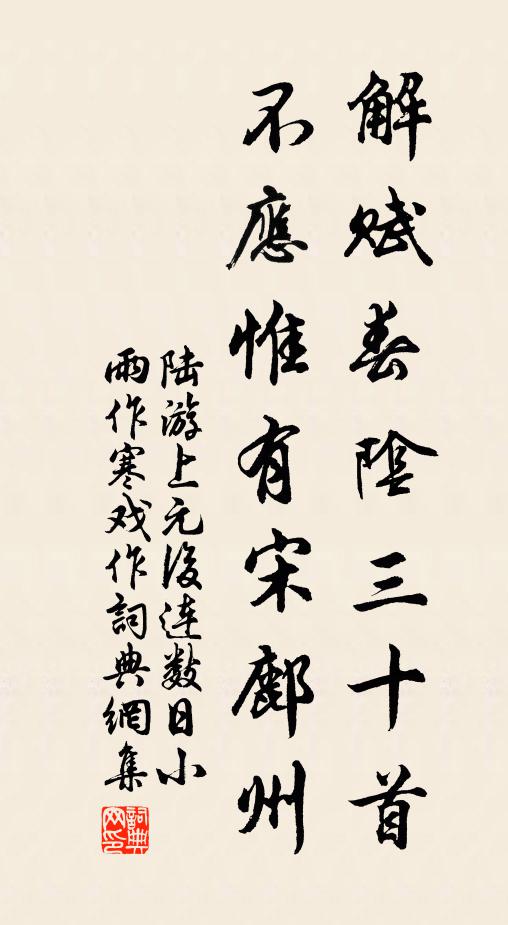 解赋春陰三十首
不應惟有宋鄜州
陆游上元後连数日小
雨作寒戏作詞典網集
詞典
网印